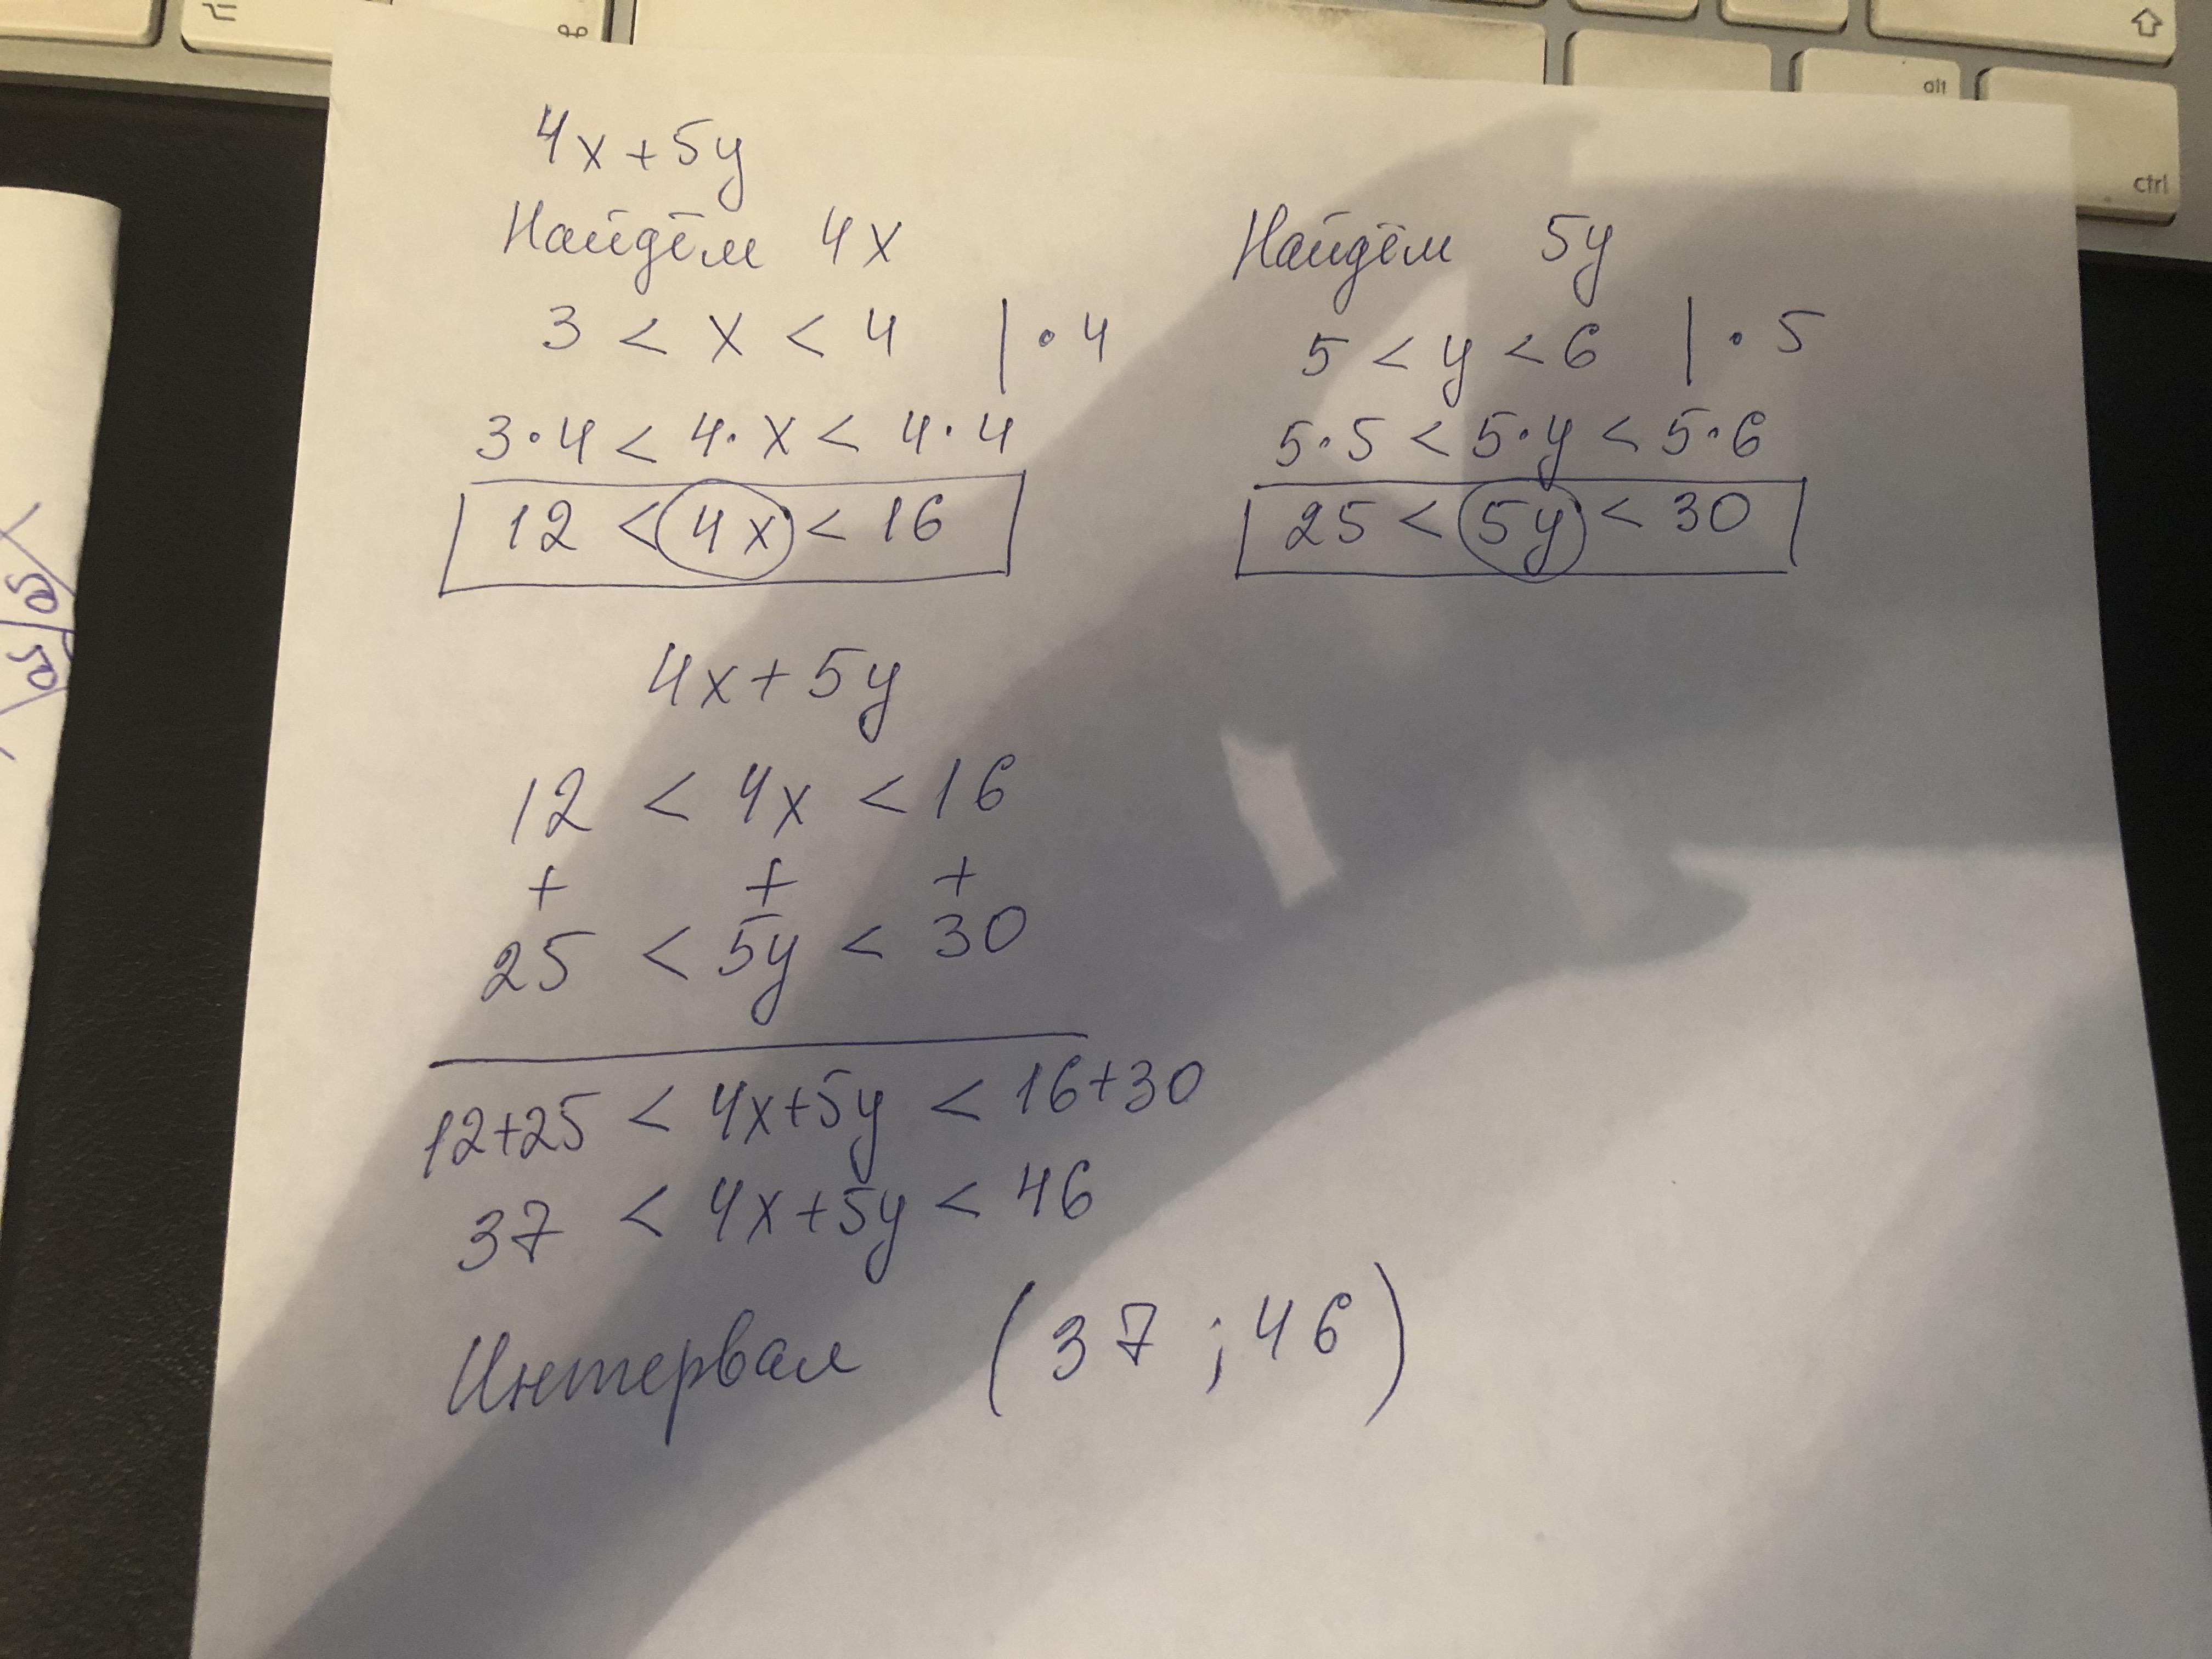 alt
ctrl
4x+5y
Найдём 4x
3 < x < 4 | · 4
3·4 < 4·x < 4·4
12 < 4x < 16
Найдём 5y
5 < y < 6 | · 5
5·5 < 5·y < 5·6
25 < 5y < 30
4x+5y
12 < 4x < 16
+ + +
25 < 5y < 30
12+25 < 4x+5y < 16+30
37 < 4x+5y < 46
Интервал (37 ; 46)